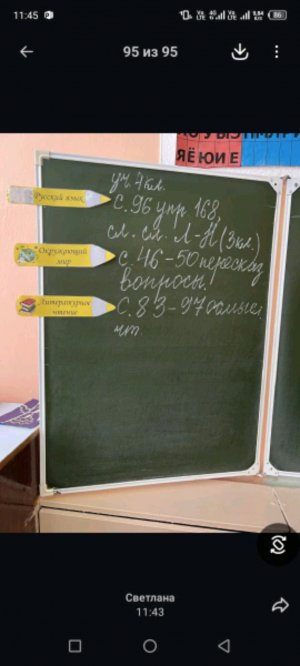 11:45
86
95 из 95
ЯЁЮИЕ
уч. 7кл.
Русский язык
с. 96 упр 168,
сл. сл. Л-Н (3кл.)
Окружающий мир
с. 46-50 пересказ
вопросы.
Литературное чтение
с. 83-97
чт
Светлана
11:43